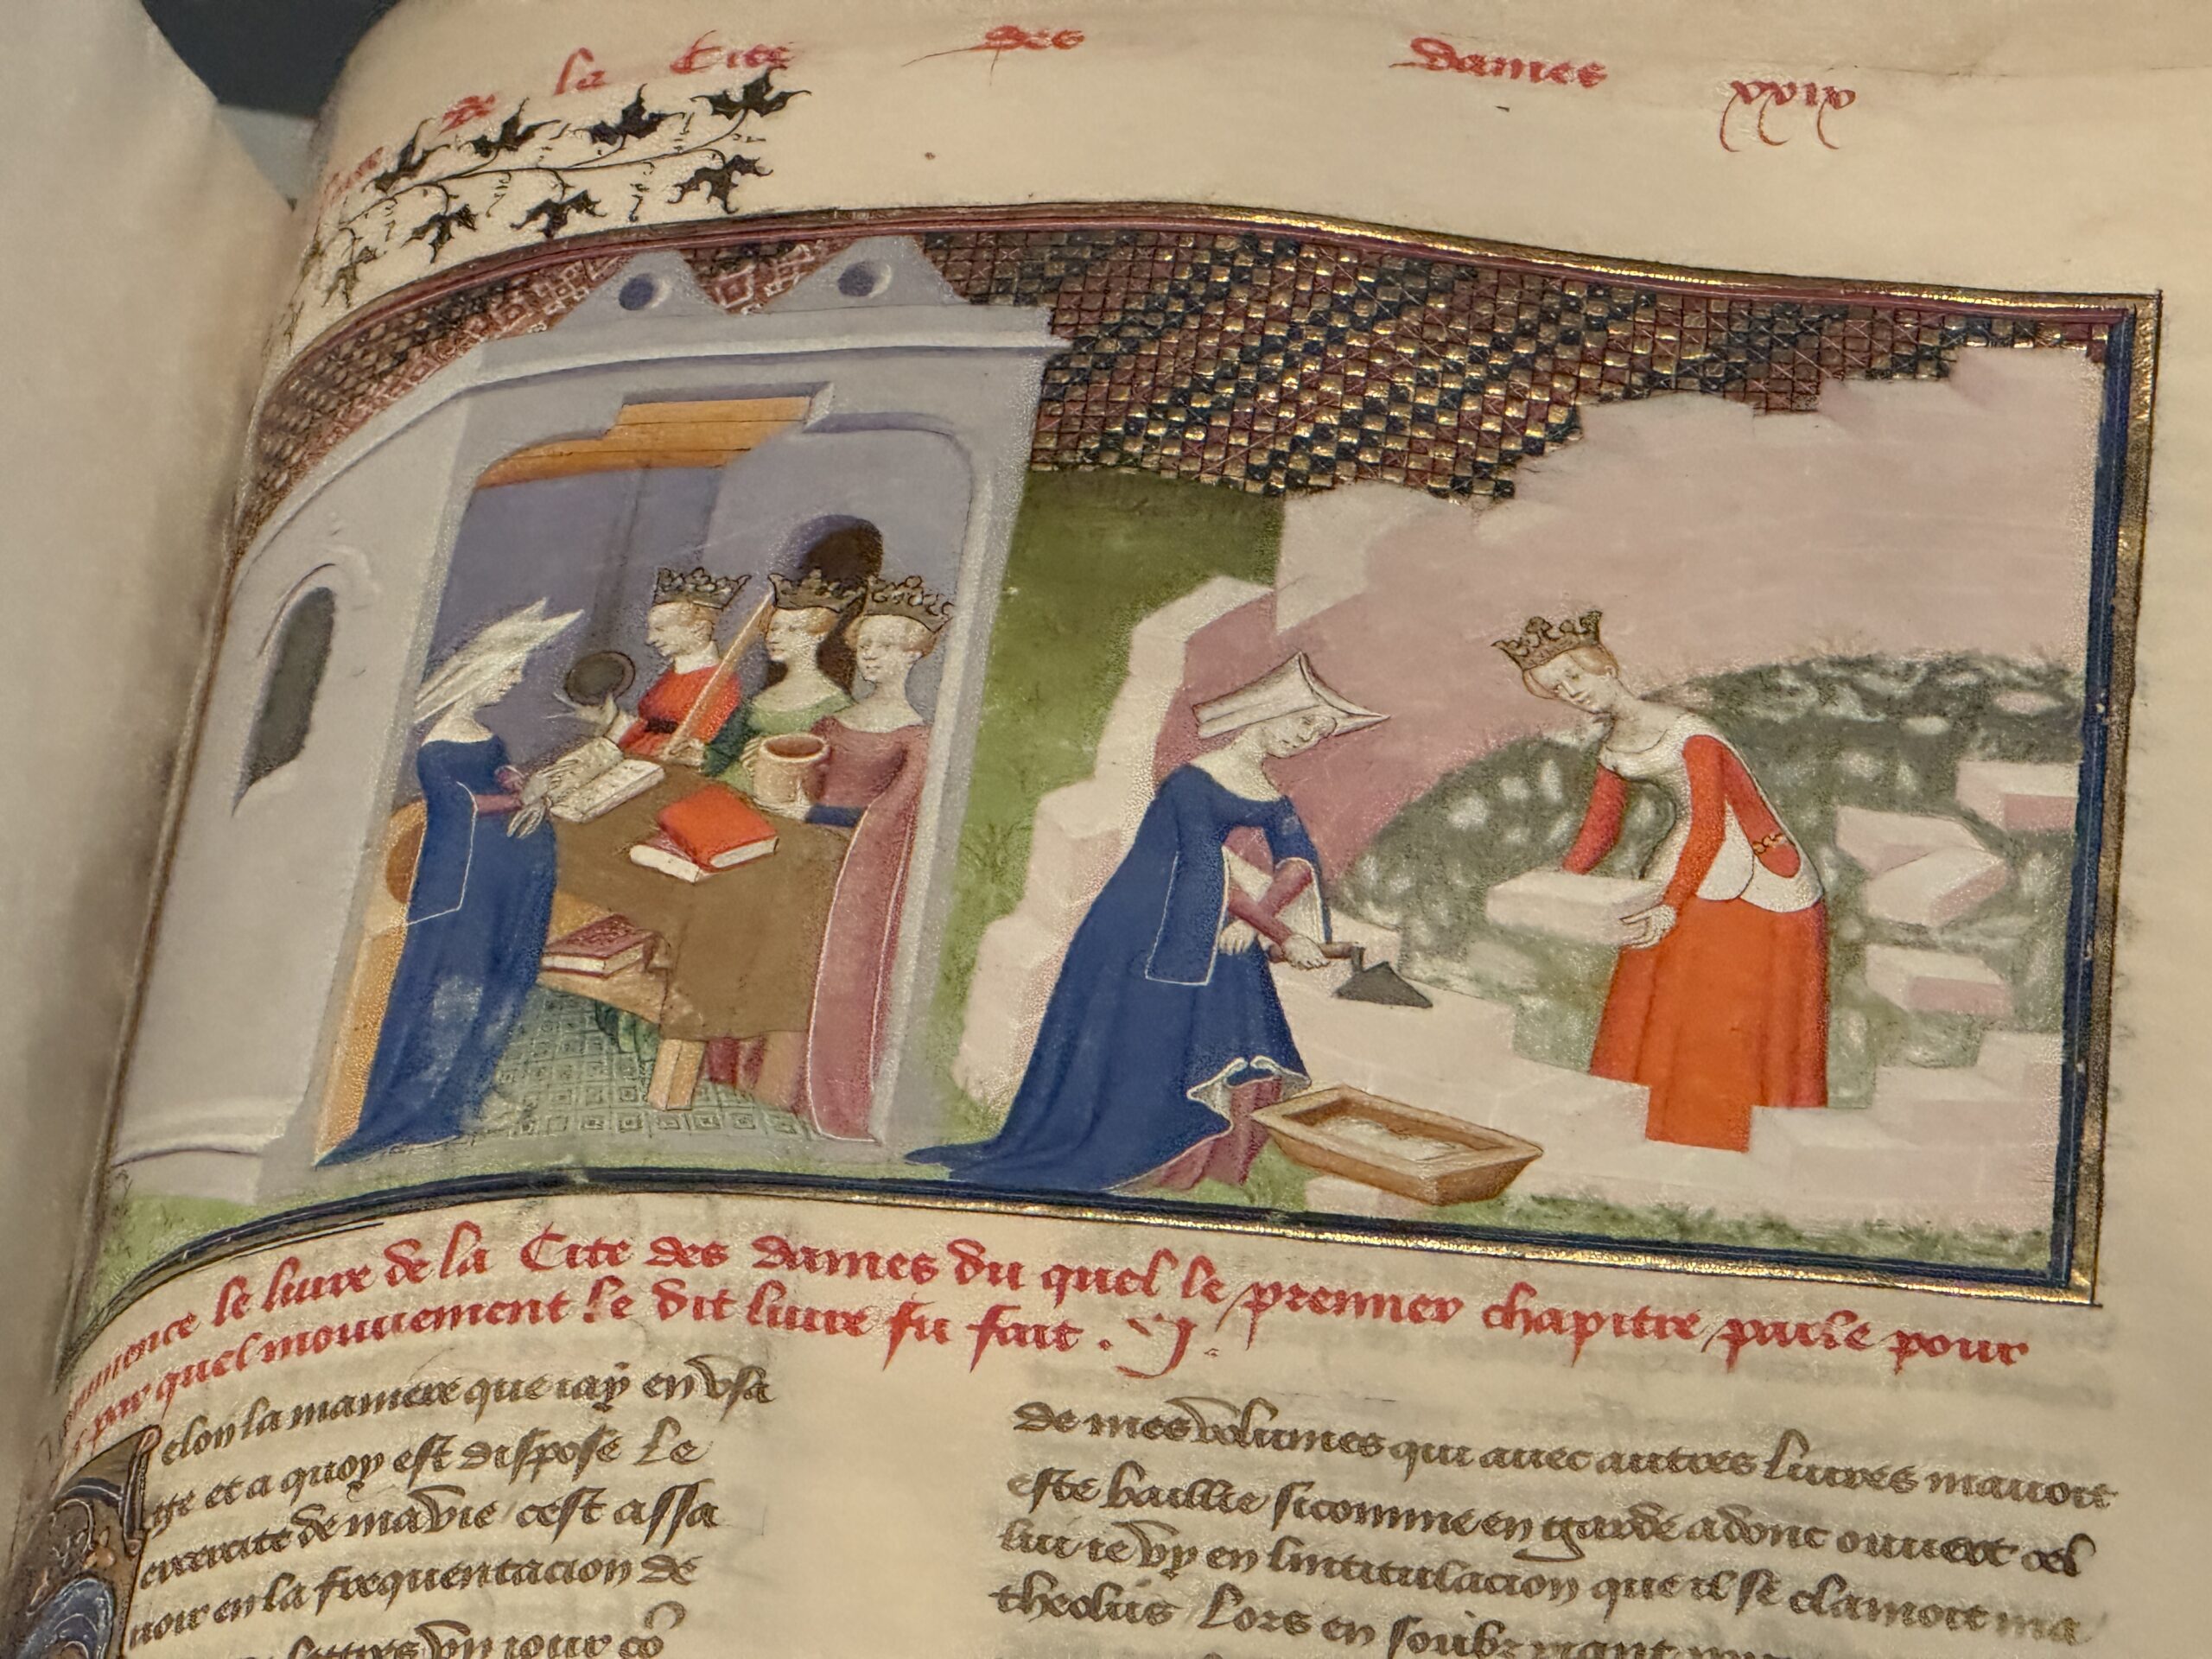 de la Cite des dames xxix
le liure de la Cite des dames du quel le premier chapitre parle pour
par quel mouuement le dit liure fu fait . J.
Selon la maniere que iay en vsa
ge et a quoy est dispose le
excercite de ma vie cest assa
uoir en la frequentacion de
lettres vn iour co
de mes volumes qui auec autres liures mauoit
este baillie sicomme en garde adonc ouuert cel
lui ie vy en lintitulacion que il se clamoit ma
theolus Lors en soubz